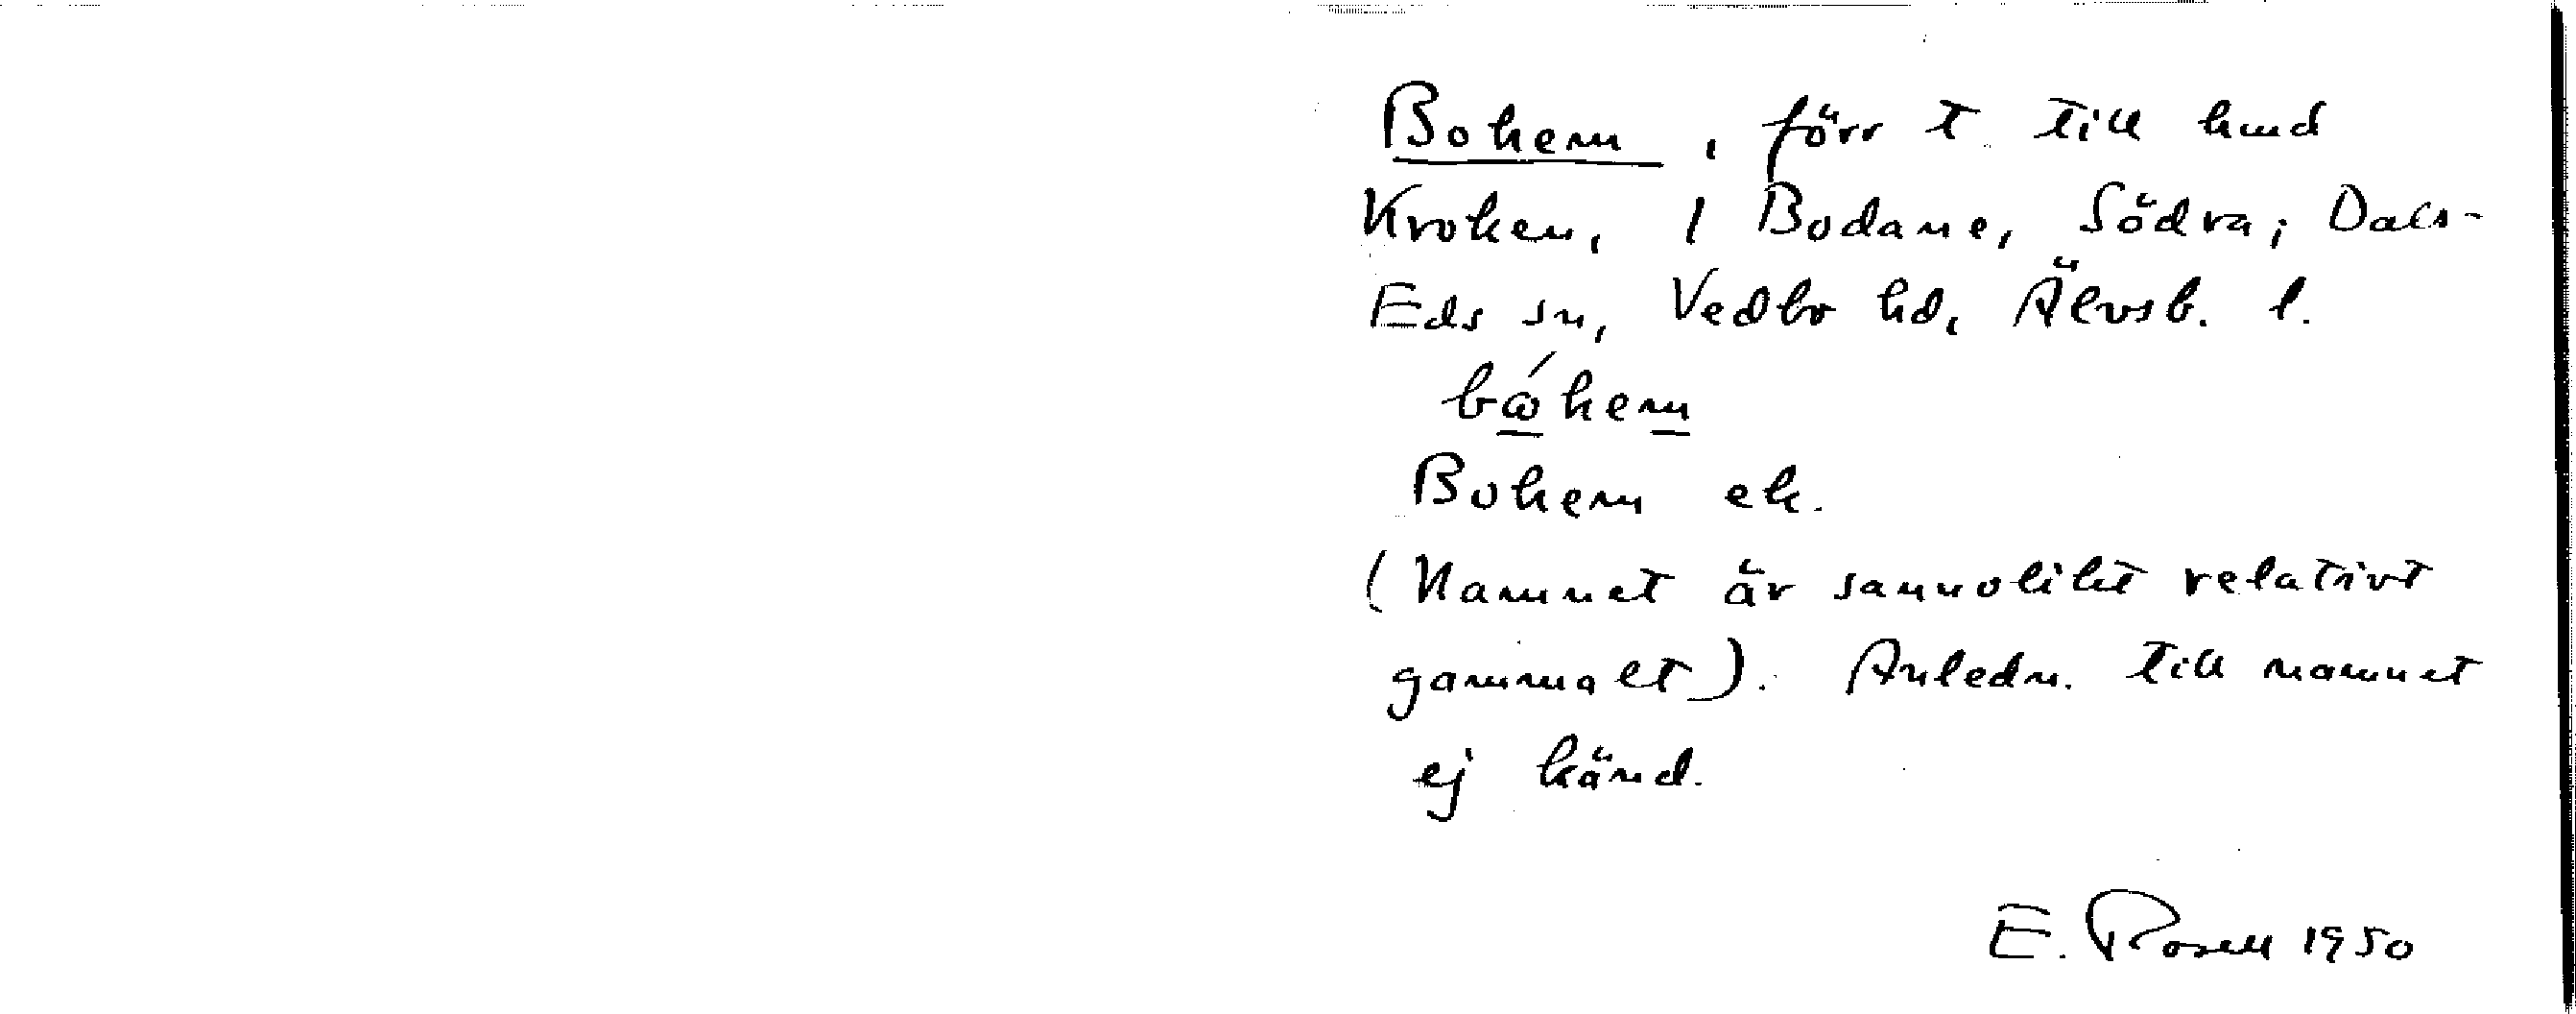 Bohem, förr t. till hmd
Kroken, 1 Bodane, Södra, Dals-
Eds sn, Vedbo hd, Älvsb. l.
bώhem
Bohem ek.
(Namnet är sannolikt relativt
gammalt). Anledn. till namnet
ej känd.
E. Rosell 1950